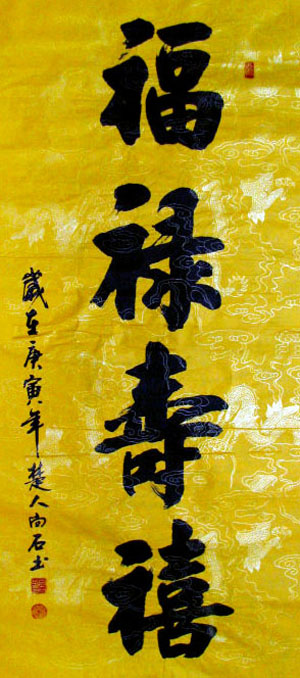 福禄寿禧
歲在庚寅年楚人尚石书